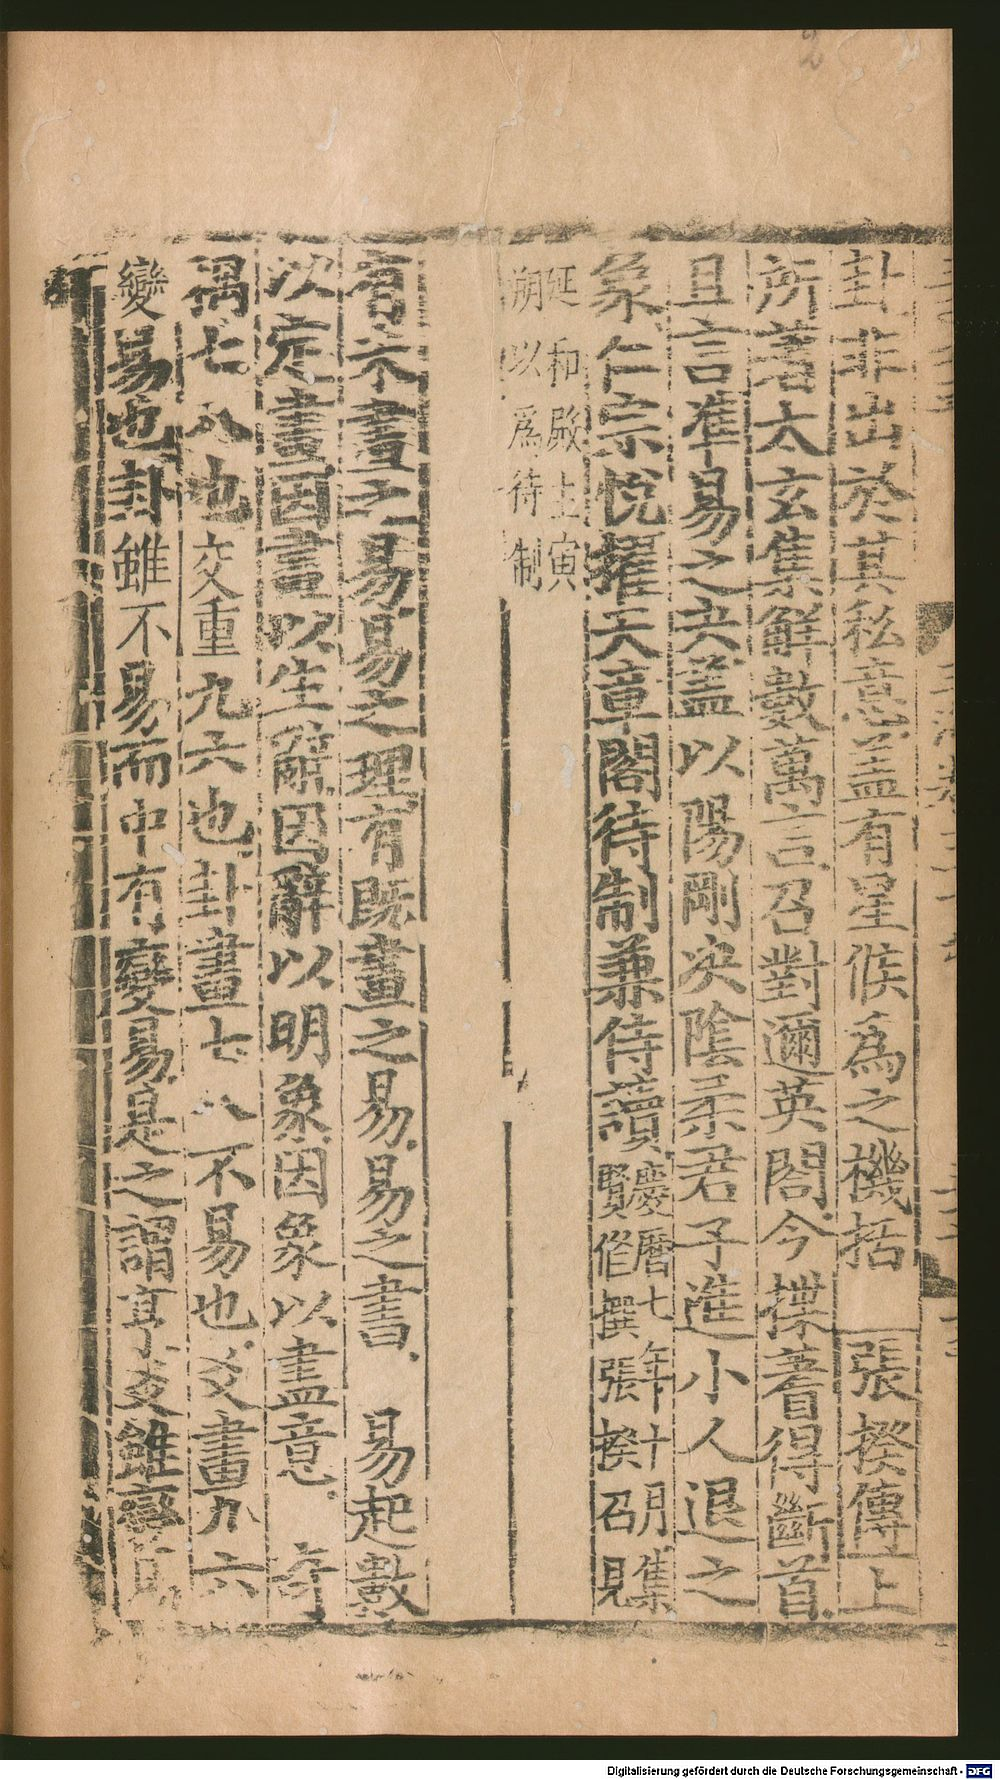 卦非出於其私意蓋有星候爲之機括 張揆傳上
所著太玄集解數萬言召對邇英閣今揲蓍得斷首
且言准易之夬蓋以陽剛決陰柔君子進小人退之
象仁宗悅擢天章閣待制兼侍讀慶曆七年十月集
賢修撰張揆召見
延和殿主寅
朔以爲待制
有未畫之易易之理有既畫之易易之書 易起數
以定畫因畫以生辭因辭以明象因象以盡意 奇
偶七八也交重九六也卦畫七八不易也爻畫九六
變易也卦雖不易而中有變易是之謂亨爻雖變
2
Digitalisierung gefördert durch die Deutsche Forschungsgemeinschaft - DFG